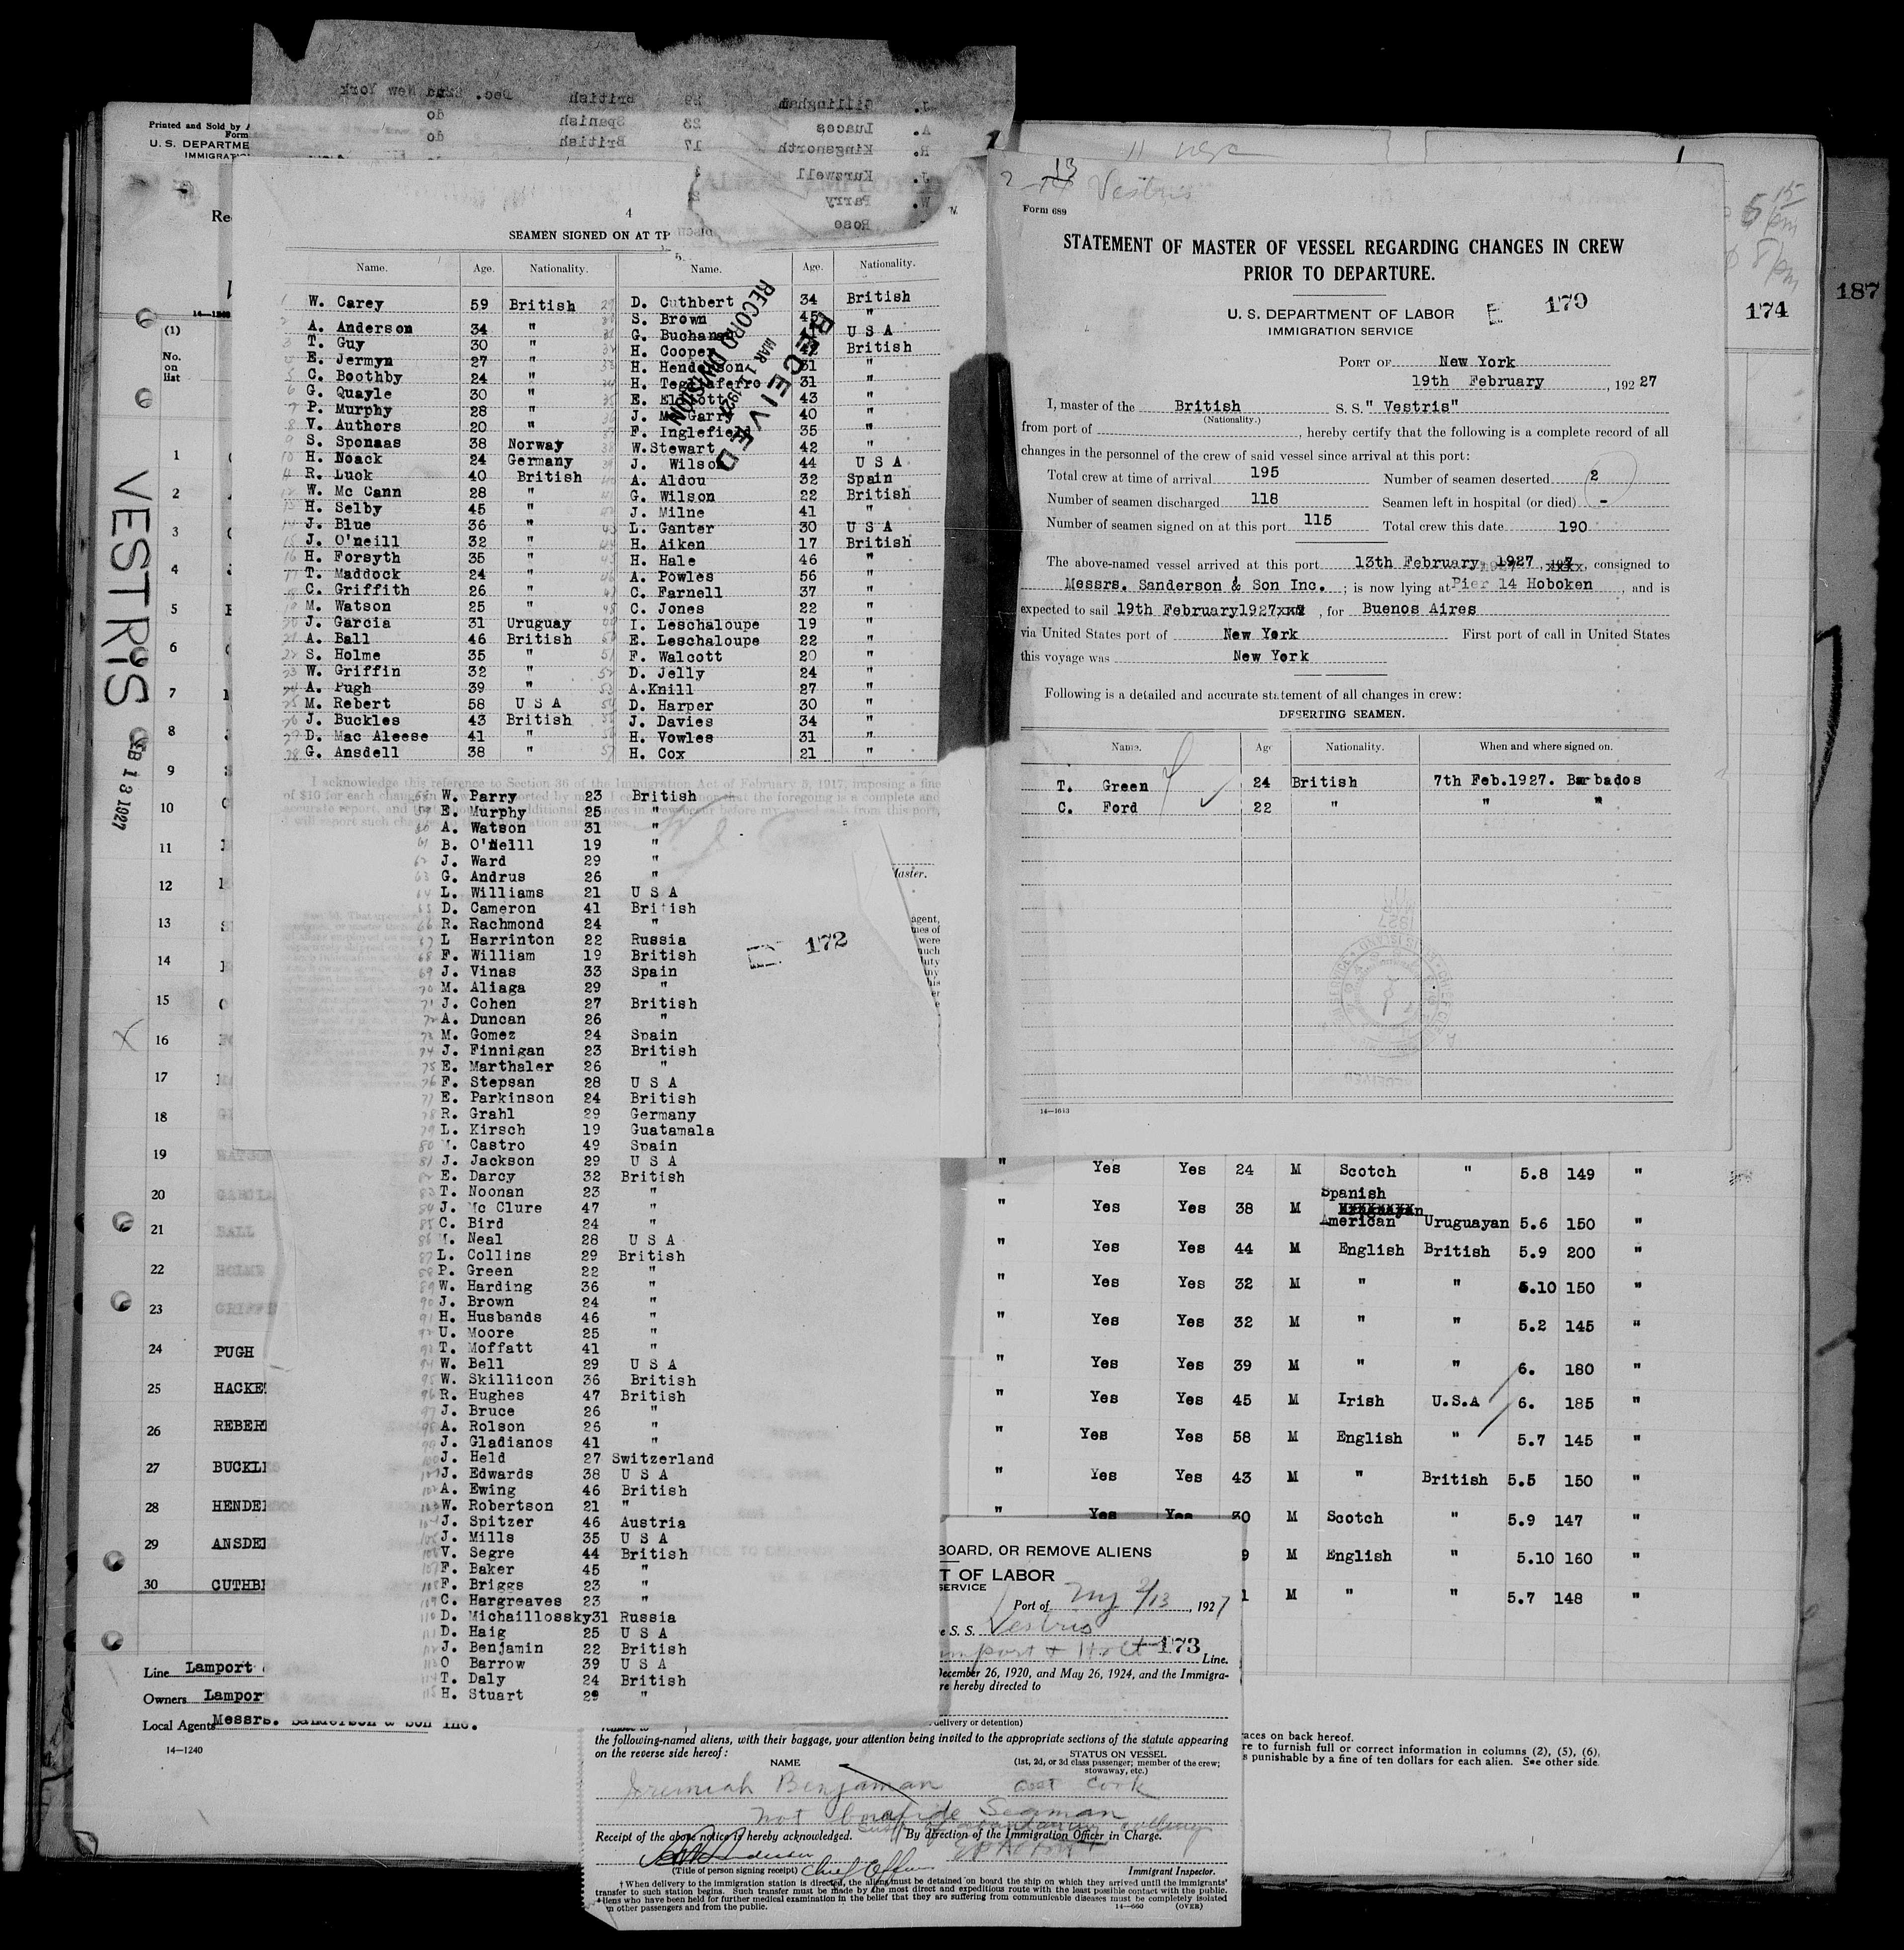 J. Gillingham 29 British Dec. 22nd New York
A. Luaces 23 Spanish do
R. Kingsnorth 17 British do
J. Kurswell
W. Parry
Rose
Printed and Sold by
Form
U. S. DEPARTME
IMMIGRAT
4
SEAMEN SIGNED ON AT
Name. Age. Nationality. Name. Age. Nationality.
W. Carey 59 British
A. Anderson 34 "
T. Guy 30 "
E. Jermyn 27 "
C. Boothby 24 "
G. Quayle 30 "
P. Murphy 28 "
V. Authors 20 "
S. Sponaas 38 Norway
H. Noack 24 Germany
R. Luck 40 British
W. Mc Cann 28 "
H. Selby 45 "
J. Blue 36 "
J. O'neill 32 "
H. Forsyth 35 "
T. Maddock 24 "
C. Griffith 26 "
M. Watson 25 "
J. Garcia 31 Uruguay
A. Ball 46 British
S. Holme 35 "
W. Griffin 32 "
A. Pugh 39 "
M. Rebert 58 U S A
J. Buckles 43 British
D. Mac Aleese 41 "
G. Ansdell 38 "
D. Cuthbert 34 British
S. Brown 45 "
G. Buchanan U S A
H. Cooper British
H. Henderson 31 "
H. Tegliaferro 31 "
E. Elliott 43 "
J. Mc Garry 40 "
F. Inglefield 35 "
W. Stewart 42 "
J. Wilson 44 U S A
A. Aldou 32 Spain
G. Wilson 22 British
J. Milne 41 "
L. Ganter 30 U S A
H. Aiken 17 British
H. Hale 46 "
A. Powles 56 "
C. Farnell 37 "
C. Jones 22 "
I. Leschaloupe 19 "
E. Leschaloupe 22 "
F. Walcott 20 "
D. Jelly 24 "
A. Knill 27 "
D. Harper 30 "
J. Davies 34 "
H. Vowles 31 "
H. Cox 21 "
RECEIVED
MAR 1 1927
RECORD DIVISION
I acknowledge this reference to Section 36 of the Immigration Act of February 5, 1917, imposing a fine
W. Parry 23 British
E. Murphy 25 "
A. Watson 31 "
B. O'Neill 19 "
J. Ward 29 "
G. Andrus 26 "
L. Williams 21 U S A
D. Cameron 41 British
R. Rachmond 24 "
L Harrinton 22 Russia
F. William 19 British
J. Vinas 33 Spain
M. Aliaga 29 "
J. Cohen 27 British
A. Duncan 26 "
M. Gomez 24 Spain
J. Finnigan 23 British
E. Marthaler 26 "
F. Stepsan 28 U S A
E. Parkinson 24 British
R. Grahl 29 Germany
L. Kirsch 19 Guatamala
Castro 49 Spain
J. Jackson 29 U S A
E. Darcy 32 British
T. Noonan 23 "
J. Mc Clure 47 "
C. Bird 24 "
Neal 28 U S A
L. Collins 29 British
P. Green 22 "
W. Harding 36 "
J. Brown 24 "
H. Husbands 46 "
U. Moore 25 "
T. Moffatt 41 "
W. Bell 29 U S A
W. Skillicon 36 British
R. Hughes 47 British
J. Bruce 26 "
A. Rolson 26 "
J. Gladianos 41 "
J. Held 27 Switzerland
J. Edwards 38 U S A
A. Ewing 46 British
W. Robertson 21 "
J. Spitzer 46 Austria
J. Mills 35 U S A
V. Segre 44 British
F. Baker 45 "
F. Briggs 23 "
C. Hargreaves 23 "
D. Michaillossky 31 Russia
D. Haig 25 U S A
J. Benjamin 22 British
O Barrow 39 U S A
T. Daly 24 British
H. Stuart 29 "
172
Master.
VESTRIS
FEB 13 1927
(1)
No. on list
1
2
3
4
5
6
7
8
9
10
11
12
13
14
15
16
17
18
19 WATSON
20 GARCIA
21 BALL
22 HOLME
23 GRIFFI
24 PUGH
25 HACKE
26 REBER
27 BUCKL
28 HENDE
29 ANSDE
30 CUTHB
Line Lamport
Owners Lampor
Local Agents Messrs. Sanderson & Son Inc.
14—1240
13
Vestris
Form 689
STATEMENT OF MASTER OF VESSEL REGARDING CHANGES IN CREW
PRIOR TO DEPARTURE.
U. S. DEPARTMENT OF LABOR
IMMIGRATION SERVICE
E 170
PORT OF New York
19th February, 192 27
I, master of the British S. S. " Vestris"
(Nationality.)
from port of , hereby certify that the following is a complete record of all
changes in the personnel of the crew of said vessel since arrival at this port:
Total crew at time of arrival 195 Number of seamen deserted 2
Number of seamen discharged 118 Seamen left in hospital (or died) -
Number of seamen signed on at this port 115 Total crew this date 190
The above-named vessel arrived at this port 13th February, 1927, consigned to
Messrs. Sanderson & Son Inc. ; is now lying at Pier 14 Hoboken , and is
expected to sail 19th February 1927, for Buenos Aires
via United States port of New York First port of call in United States
this voyage was New York
Following is a detailed and accurate statement of all changes in crew:
DESERTING SEAMEN.
Name. Age Nationality. When and where signed on.
T. Green 24 British 7th Feb.1927. Barbados
C. Ford 22 " " "
14—1643
174
187
5 15 pm
8 pm
" Yes Yes 24 M Scotch " 5.8 149 "
" Yes Yes 38 M Spanish American Uruguayan 5.6 150 "
" Yes Yes 44 M English British 5.9 200 "
" Yes Yes 32 M " " 5.10 150 "
" Yes Yes 32 M " " 5.2 145 "
" Yes Yes 39 M " " 6. 180 "
" Yes Yes 45 M Irish U.S.A 6. 185 "
" Yes Yes 58 M English " 5.7 145 "
" Yes Yes 43 M " British 5.5 150 "
" Yes Yes 30 M Scotch " 5.9 147 "
9 M English " 5.10 160 "
1 M " " 5.7 148 "
BOARD, OR REMOVE ALIENS
T OF LABOR
SERVICE
Port of NY 2/13, 1927
S. S. Vestris
mport + Holt 173 Line.
December 26, 1920, and May 26, 1924, and the Immigra-
re hereby directed to
delivery or detention)
the following-named aliens, with their baggage, your attention being invited to the appropriate sections of the statute appearing
on the reverse side hereof:
NAME STATUS ON VESSEL
(1st, 2d, or 3d class passenger; member of the crew;
stowaway, etc.)
Jeremiah Benjaman asst cook
not bonafide Seaman
Receipt of the above notice is hereby acknowledged. By direction of the Immigration Officer in Charge.
Chief Officer
(Title of person signing receipt) Immigrant Inspector.
† When delivery to the immigration station is directed, the aliens must be detained on board the ship on which they arrived until the immigrants'
transfer to such station begins. Such transfer must be made by the most direct and expeditious route with the least possible contact with the public.
Aliens who have been held for further medical examination in the belief that they are suffering from communicable diseases must be completely isolated
m other passengers and from the public.
14—660 (OVER)
aces on back hereof.
re to furnish full or correct information in columns (2), (5), (6),
s punishable by a fine of ten dollars for each alien. See other side.